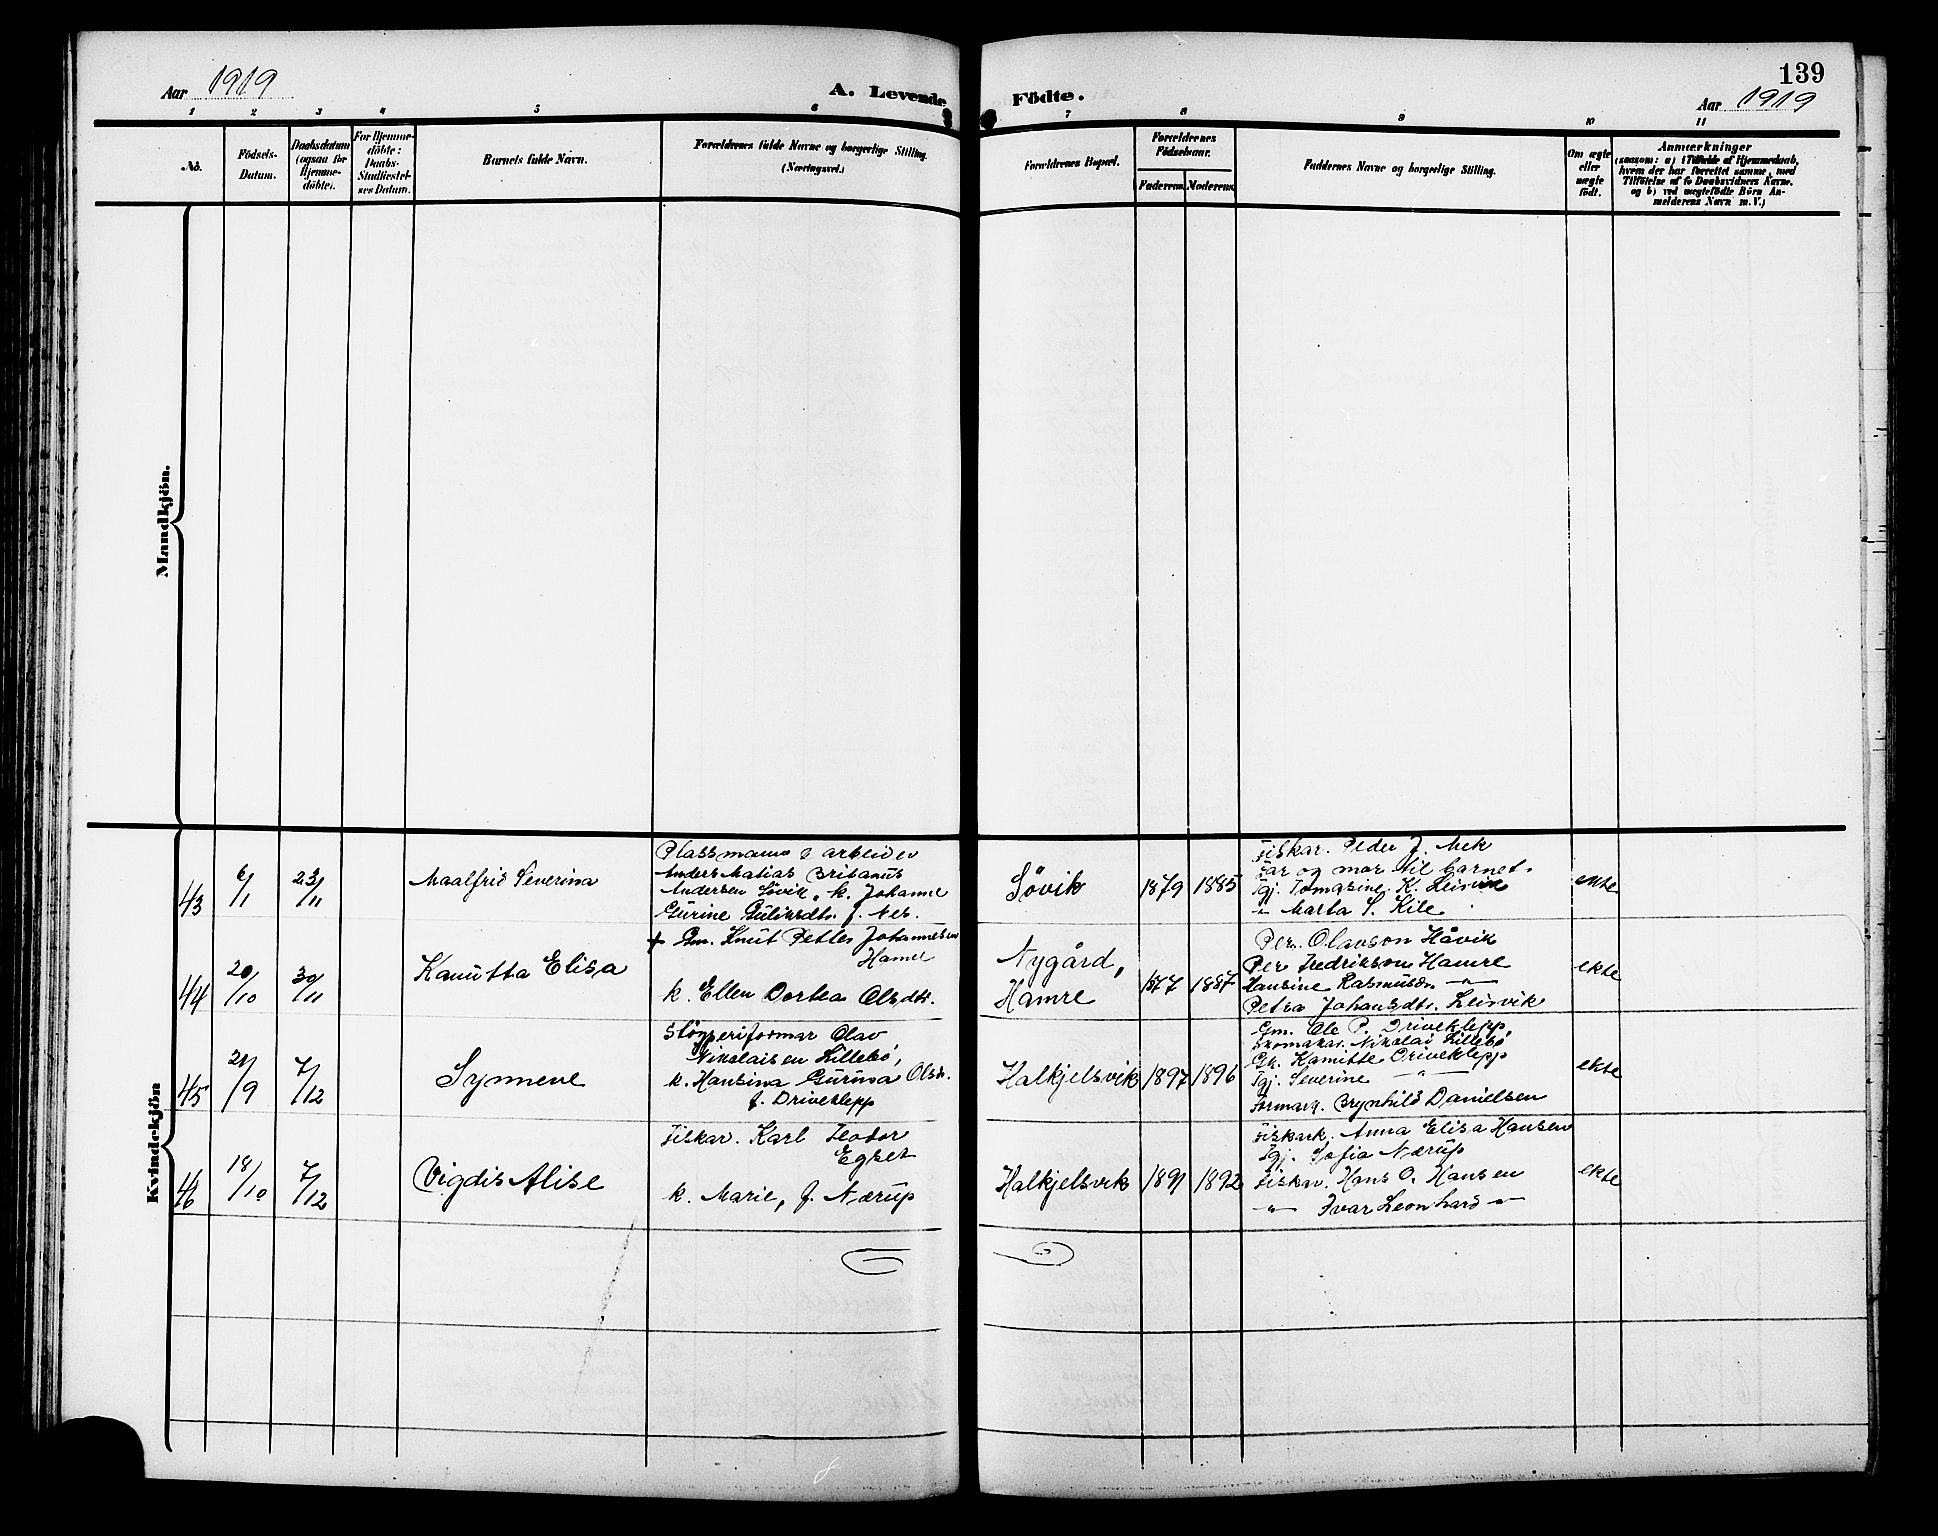 139
Aar 1919
A. Levende Födte.
Aar 1919
1 2 3 4 5 6 7 8 9 10 11
No.
Födsels-
Datum.
Daabsdatum
(ogsaa for
Hjemme-
döbte).
For Hjemme-
döbte:
Daabs-
Stadfæstel-
ses Datum.
Barnets fulde Navn.
Forældrenes fulde Navne og borgerlige Stilling.
(Næringsvei.)
Forældrenes Bopæl.
Forældrenes
Födselsaar.
Faderens. Moderens.
Faddernes Navne og borgerlige Stilling.
Om ægte
eller
uægte
födt.
Anmærkninger
(saasom: a) i Tilfælde af Hjemmedaab,
hvem der har forrettet samme, med
Tilföielse af to Daabsvidners Navne,
og b) ved uægtefödte Börn An-
melderens Navn m. V.)
Mandkjön.
Kvindekjön
43
6/1
23/11
Maalfrid Severina
Plassmann & arbeider
Anders Matias Britanus
Andersen Søvik, k. Johanne
Gurine Gulikdtr. f. Nes.
Søvik
1879 1885
Fiskar. Peder J. Mek
Far og mor til barnet.
Tgj. Tomasine K. Leirvik
" Marta S. Kile
ekte
44
20/10
30/11
Kanutta Elisa
+ Gm. Knut Petter Johannesen
Hamre
k. Ellen Dortea Olsdtr.
Nygård,
Hamre
1877 1887
Per Olavson Håvik
Per Fredrikson Hamre
Hansine Rasmusdr. —"—
Petra Johansdtr. Leirvik
ekte
45
21/9
7/12
Synneve
Støyperiformar Olav
Nikolaisen Lillebø,
k. Hansina Gurina Olsdr.
f. Driveklepp
Halkjelsvik
1897 1896
Gm. Ole P. Driveklepp,
Skomakar. Nikolai Lillebø
Gk. Kamitte Driveklepp
Tgj. Severine —"—
Formark. Brynhild Danielsen
ekte
46
18/10
7/12
Vigdis Alise
Fiskar. Karl Teodor
Egset
k. Marie, f. Nærup
Halkjelsvik
1891 1892
Fiskark. Anna Elisa Hansen
Tgj. Sofia Nærup
Fiskar. Hans O. Hansen
—"— Ivar Leonhard —"—
ekte